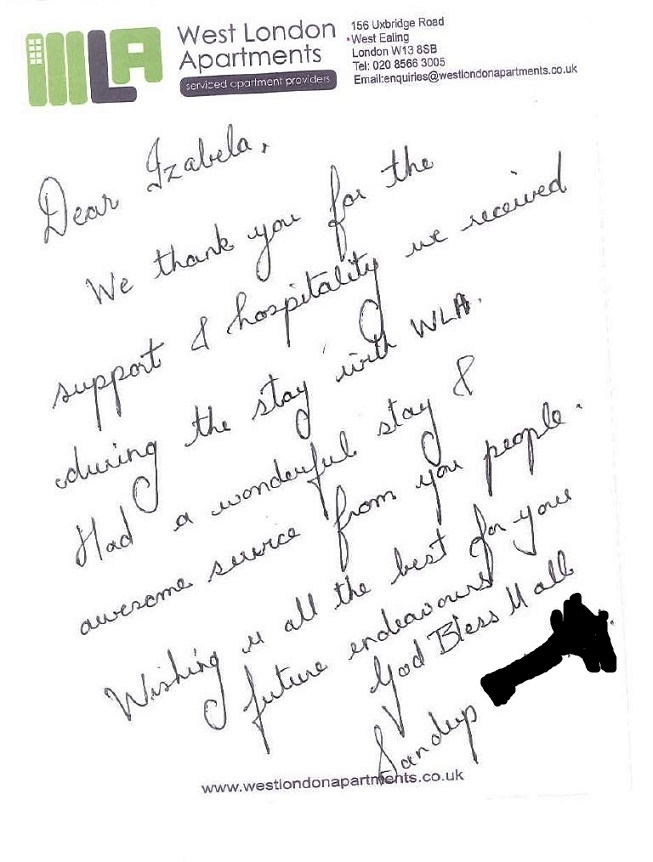 WLA
West London
Apartments
serviced apartment providers
156 Uxbridge Road
West Ealing
London W13 8SB
Tel: 020 8566 3005
Email:enquiries@westlondonapartments.co.uk
Dear Izabela,
We thank you for the
support & hospitality we received
during the stay with WLA.
Had a wonderful stay &
awesome service from you people.
Wishing u all the best for your
future endeavours
God Bless U all
Sandeep
www.westlondonapartments.co.uk